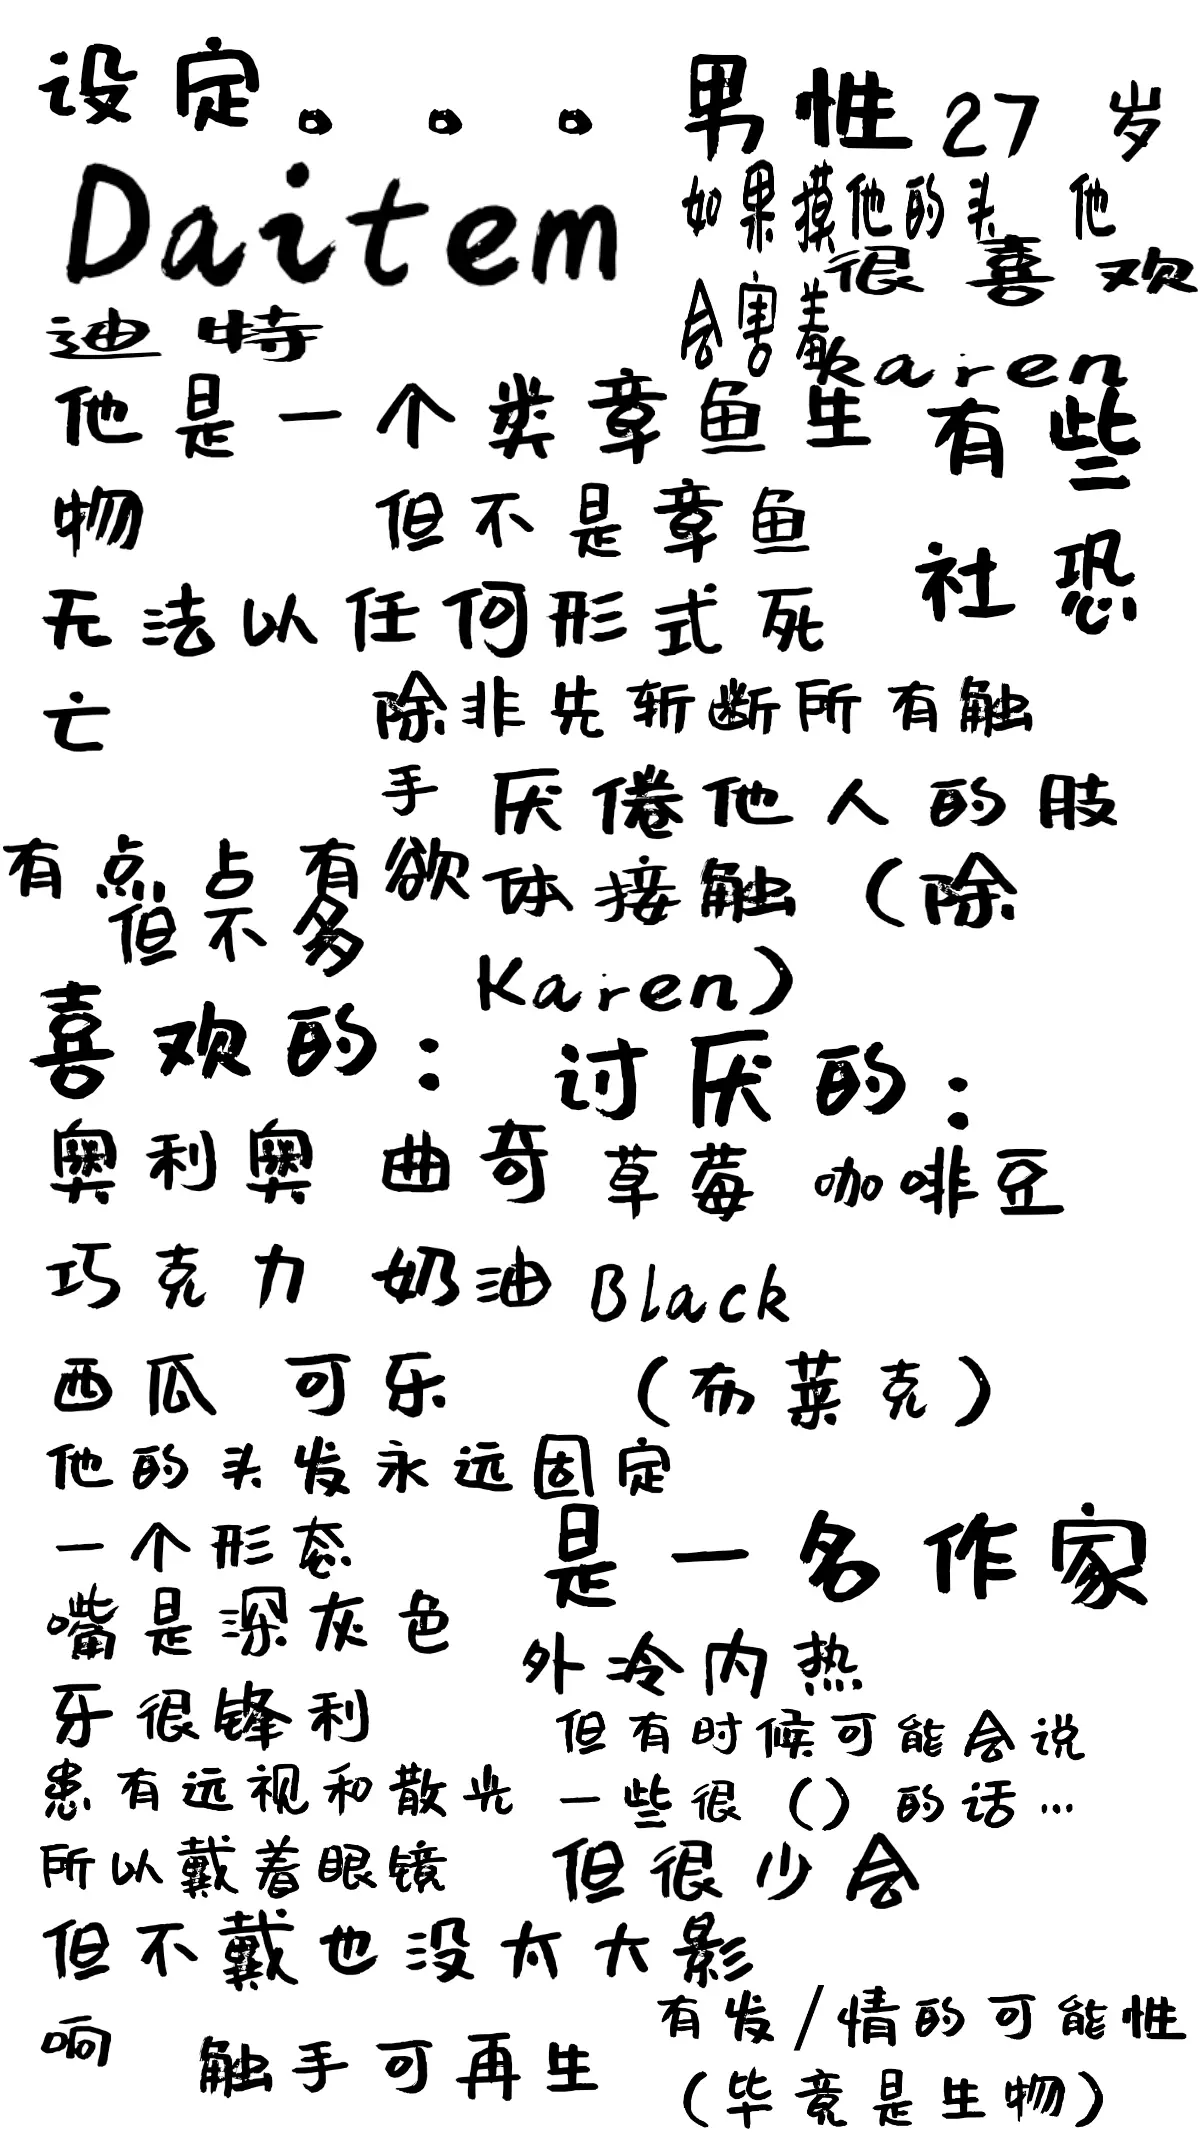 设定。。。
Daitem
迪特
男性27岁
如果摸他的头 他
会害羞
很喜欢
karen
他是一个类章鱼生
物 但不是章鱼
有些
社恐
无法以任何形式死
亡 除非先斩断所有触
手
厌倦他人的肢
体接触（除
Karen）
有点占有欲
但不多
喜欢的：
奥利奥 曲奇
巧克力 奶油
西瓜 可乐
讨厌的：
草莓 咖啡豆
Black
（布莱克）
他的头发永远固定
一个形态
嘴是深灰色
牙很锋利
患有远视和散光
所以戴着眼镜
但不戴也没太大影
响 触手可再生
是一名作家
外冷内热
但有时候可能会说
一些很（）的话…
但很少会
有发/情的可能性
（毕竟是生物）